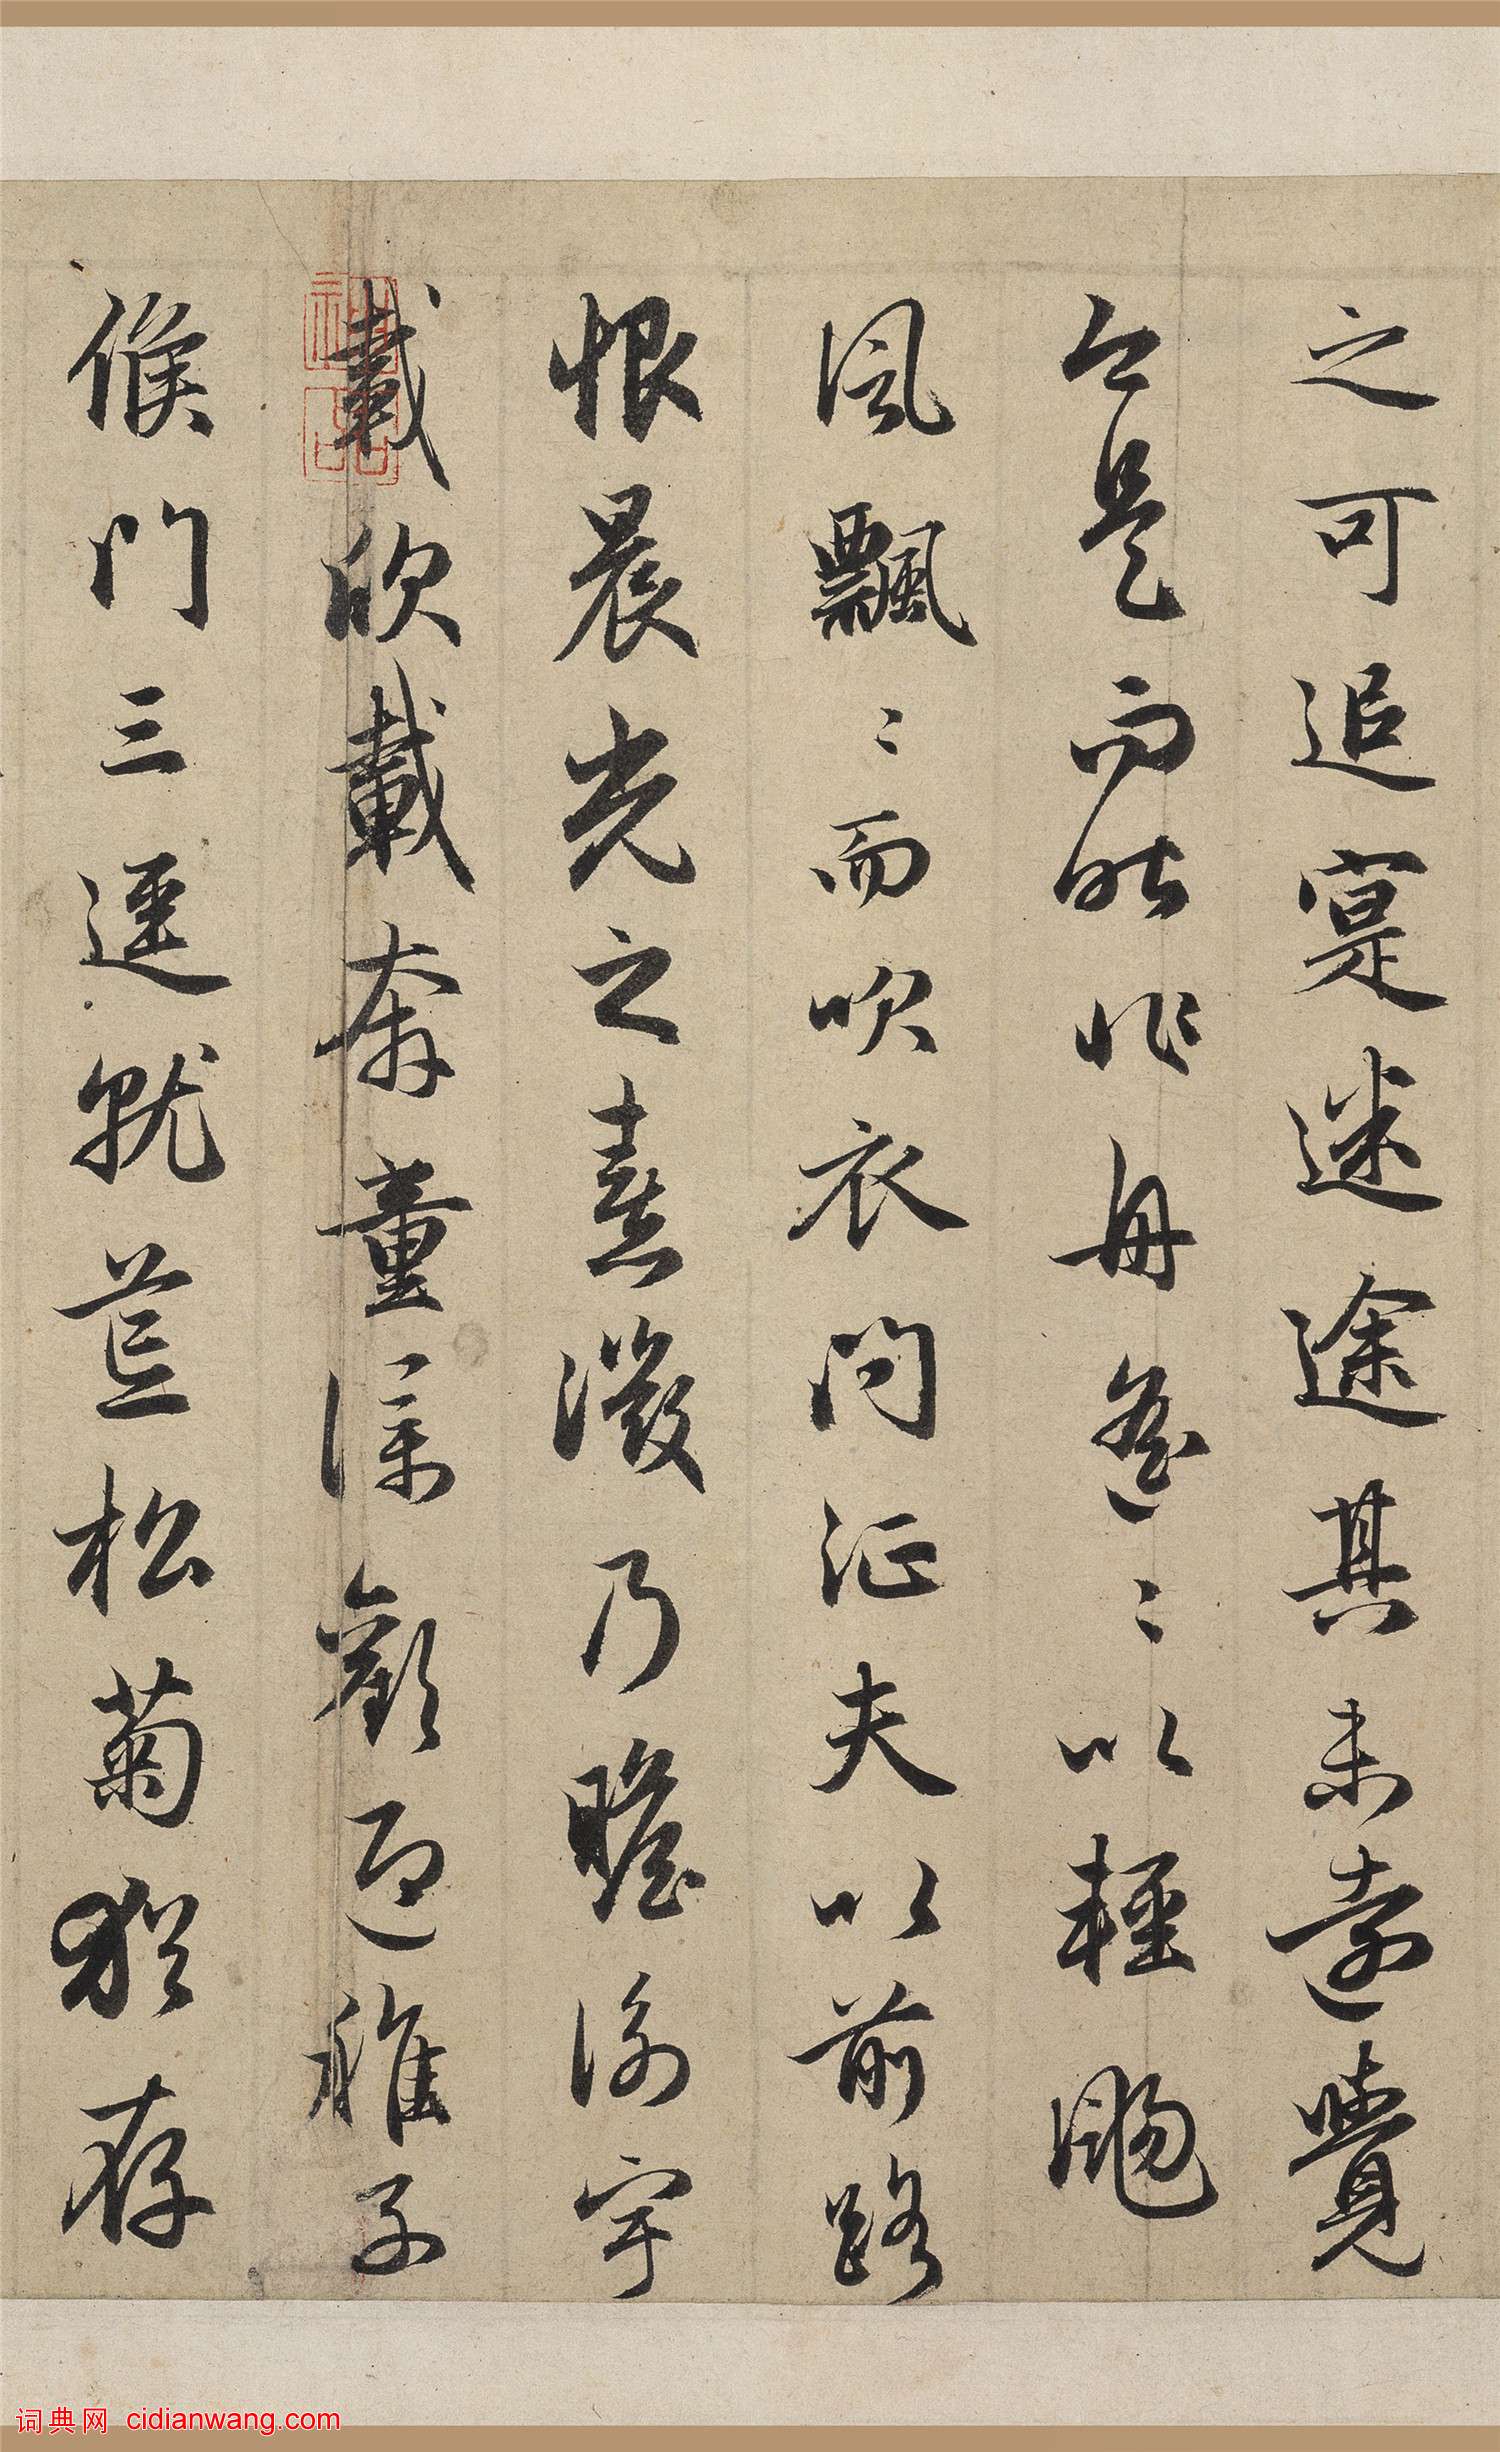 之可追寔迷途其未遠覺
今是而昨非舟遙〻以輕颺
風飄〻而吹衣問征夫以前路
恨晨光之熹微乃瞻衡宇
載欣載奔童僕歡迎稚子
候門三逕就荒松菊猶存
神品
词典网 cidianwang.com